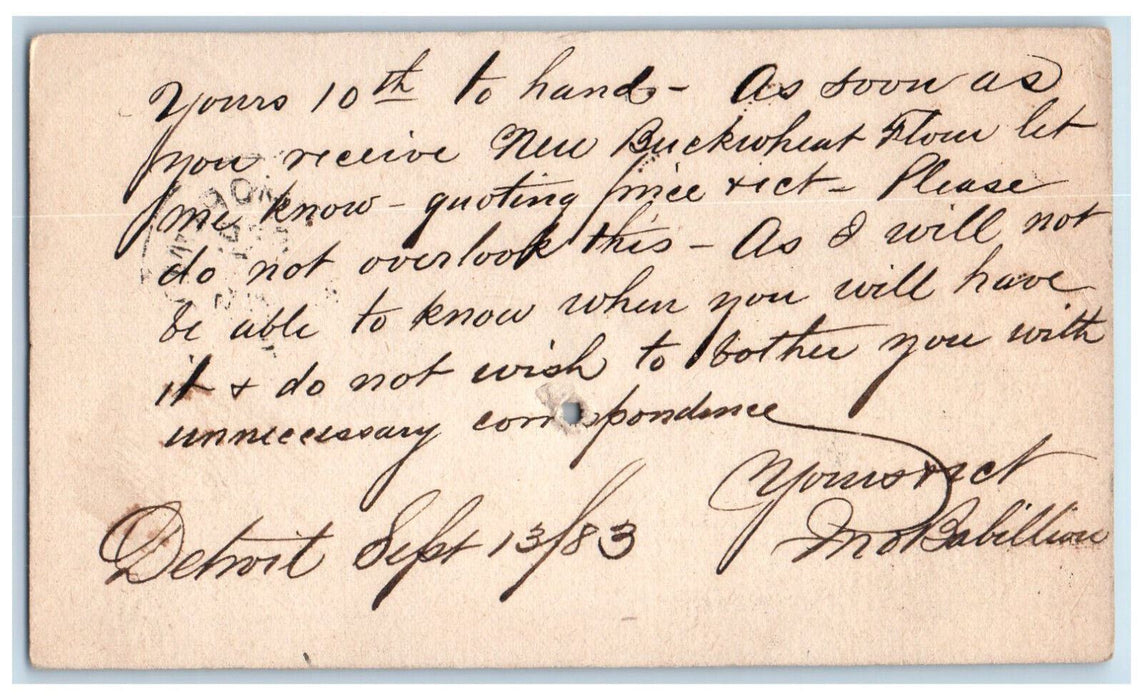 Yours 10th to hand - As soon as
you receive New Buckwheat Flour let
me know - quoting price & ect - Please
do not overlook this - As I will not
be able to know when you will have
it & do not wish to bother you with
unnecessary correspondence
Yours & ect
Jno Babillion
Detroit Sept 13/83